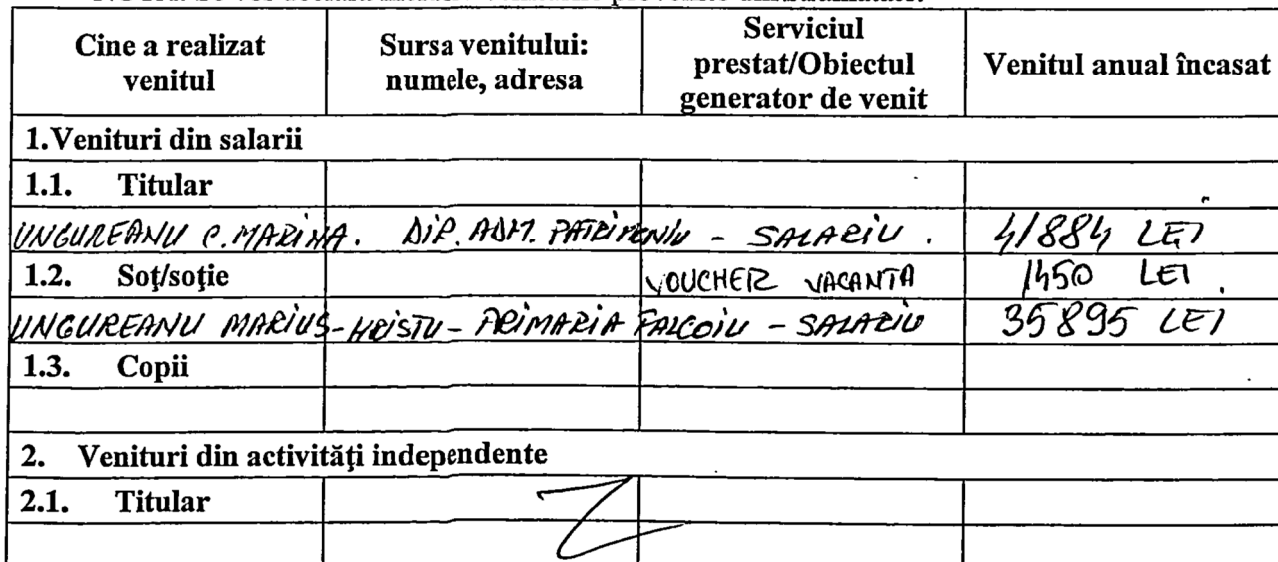 Cine a realizat venitul | Sursa venitului: numele, adresa | Serviciul prestat/Obiectul generator de venit | Venitul anual încasat
1.Venituri din salarii
1.1. Titular
UNGUREANU C. MARINA. DIP. ADM. PATRIMONIU - SALARIU. 41884 LEI
1.2. Soţ/soţie VOUCHER VACANTA 1450 LEI.
UNGUREANU MARIUS-HRISTU- PRIMARIA FALCOIU - SALARIU 35895 LEI
1.3. Copii
2. Venituri din activităţi independente
2.1. Titular